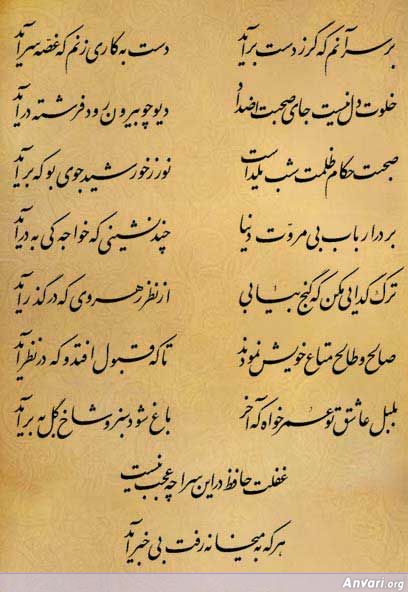 بر سر آنم که گر ز دست برآید دست به کاری زنم که غصه سرآید
خلوت دل نیست جای صحبت اضداد دیو چو بیرون رود فرشته درآید
صحبت حکام ظلمت شب یلداست نور ز خورشید جوی بو که برآید
بر در ارباب بی مروّت دنیا چند نشینی که خواجه کی به درآید
ترک گدایی مکن که گنج بیابی از نظر رهروی که در گذر آید
صالح و طالح متاع خویش نمودند تا که قبول افتد و که در نظر آید
بلبل عاشق تو عمر خواه که آخر باغ شود سبز و شاخ گل به برآید
غفلت حافظ در این سراچه عجب نیست
هر که به میخانه رفت بی خبر آید
Anvari.org